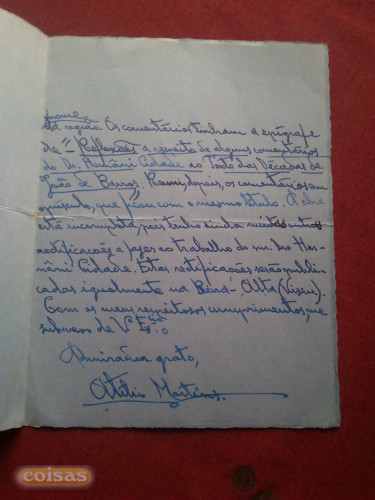 da região. Os comentários tinham a epígrafe
de "Reflexões a respeito de alguns comentários
do Dr. Hernâni Cidade ao Texto das Décadas de
João de Barros. Reuni, depois, os comentários em
opúsculo, que ficou com o mesmo título. A obra
está incompleta, pois tenho ainda muitas outras
rectificações a fazer ao trabalho do sr. Dr. Her-
nâni Cidade. Estas rectificações serão publi-
cadas igualmente na Beira-Alta (Viseu).
Com os meus respeitosos cumprimentos, me
subscrevo de V. Ex.ª
Admirador grato,
Atílio Martins.
coisas